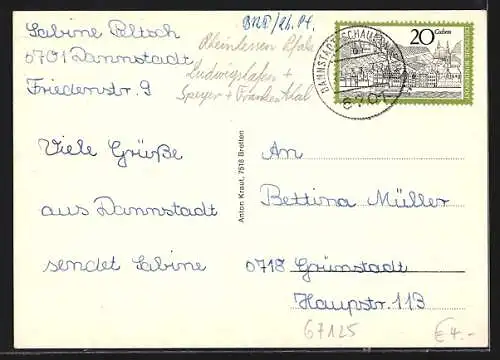 Sabine Peltsch
6701 Dannstadt
Friedenstr. 9
BRD/
Rheinhessen Pfalz
Ludwigshafen +
Speyer + Frankenthal
20
DANNSTADT-SCHAUERNHEIM
6701
Viele Grüße
aus Dannstadt
sendet Sabine
Anton Kraut, 7518 Bretten
An
Bettina Müller
6718 Grünstadt
Haupstr. 113
67125
€ 4.-